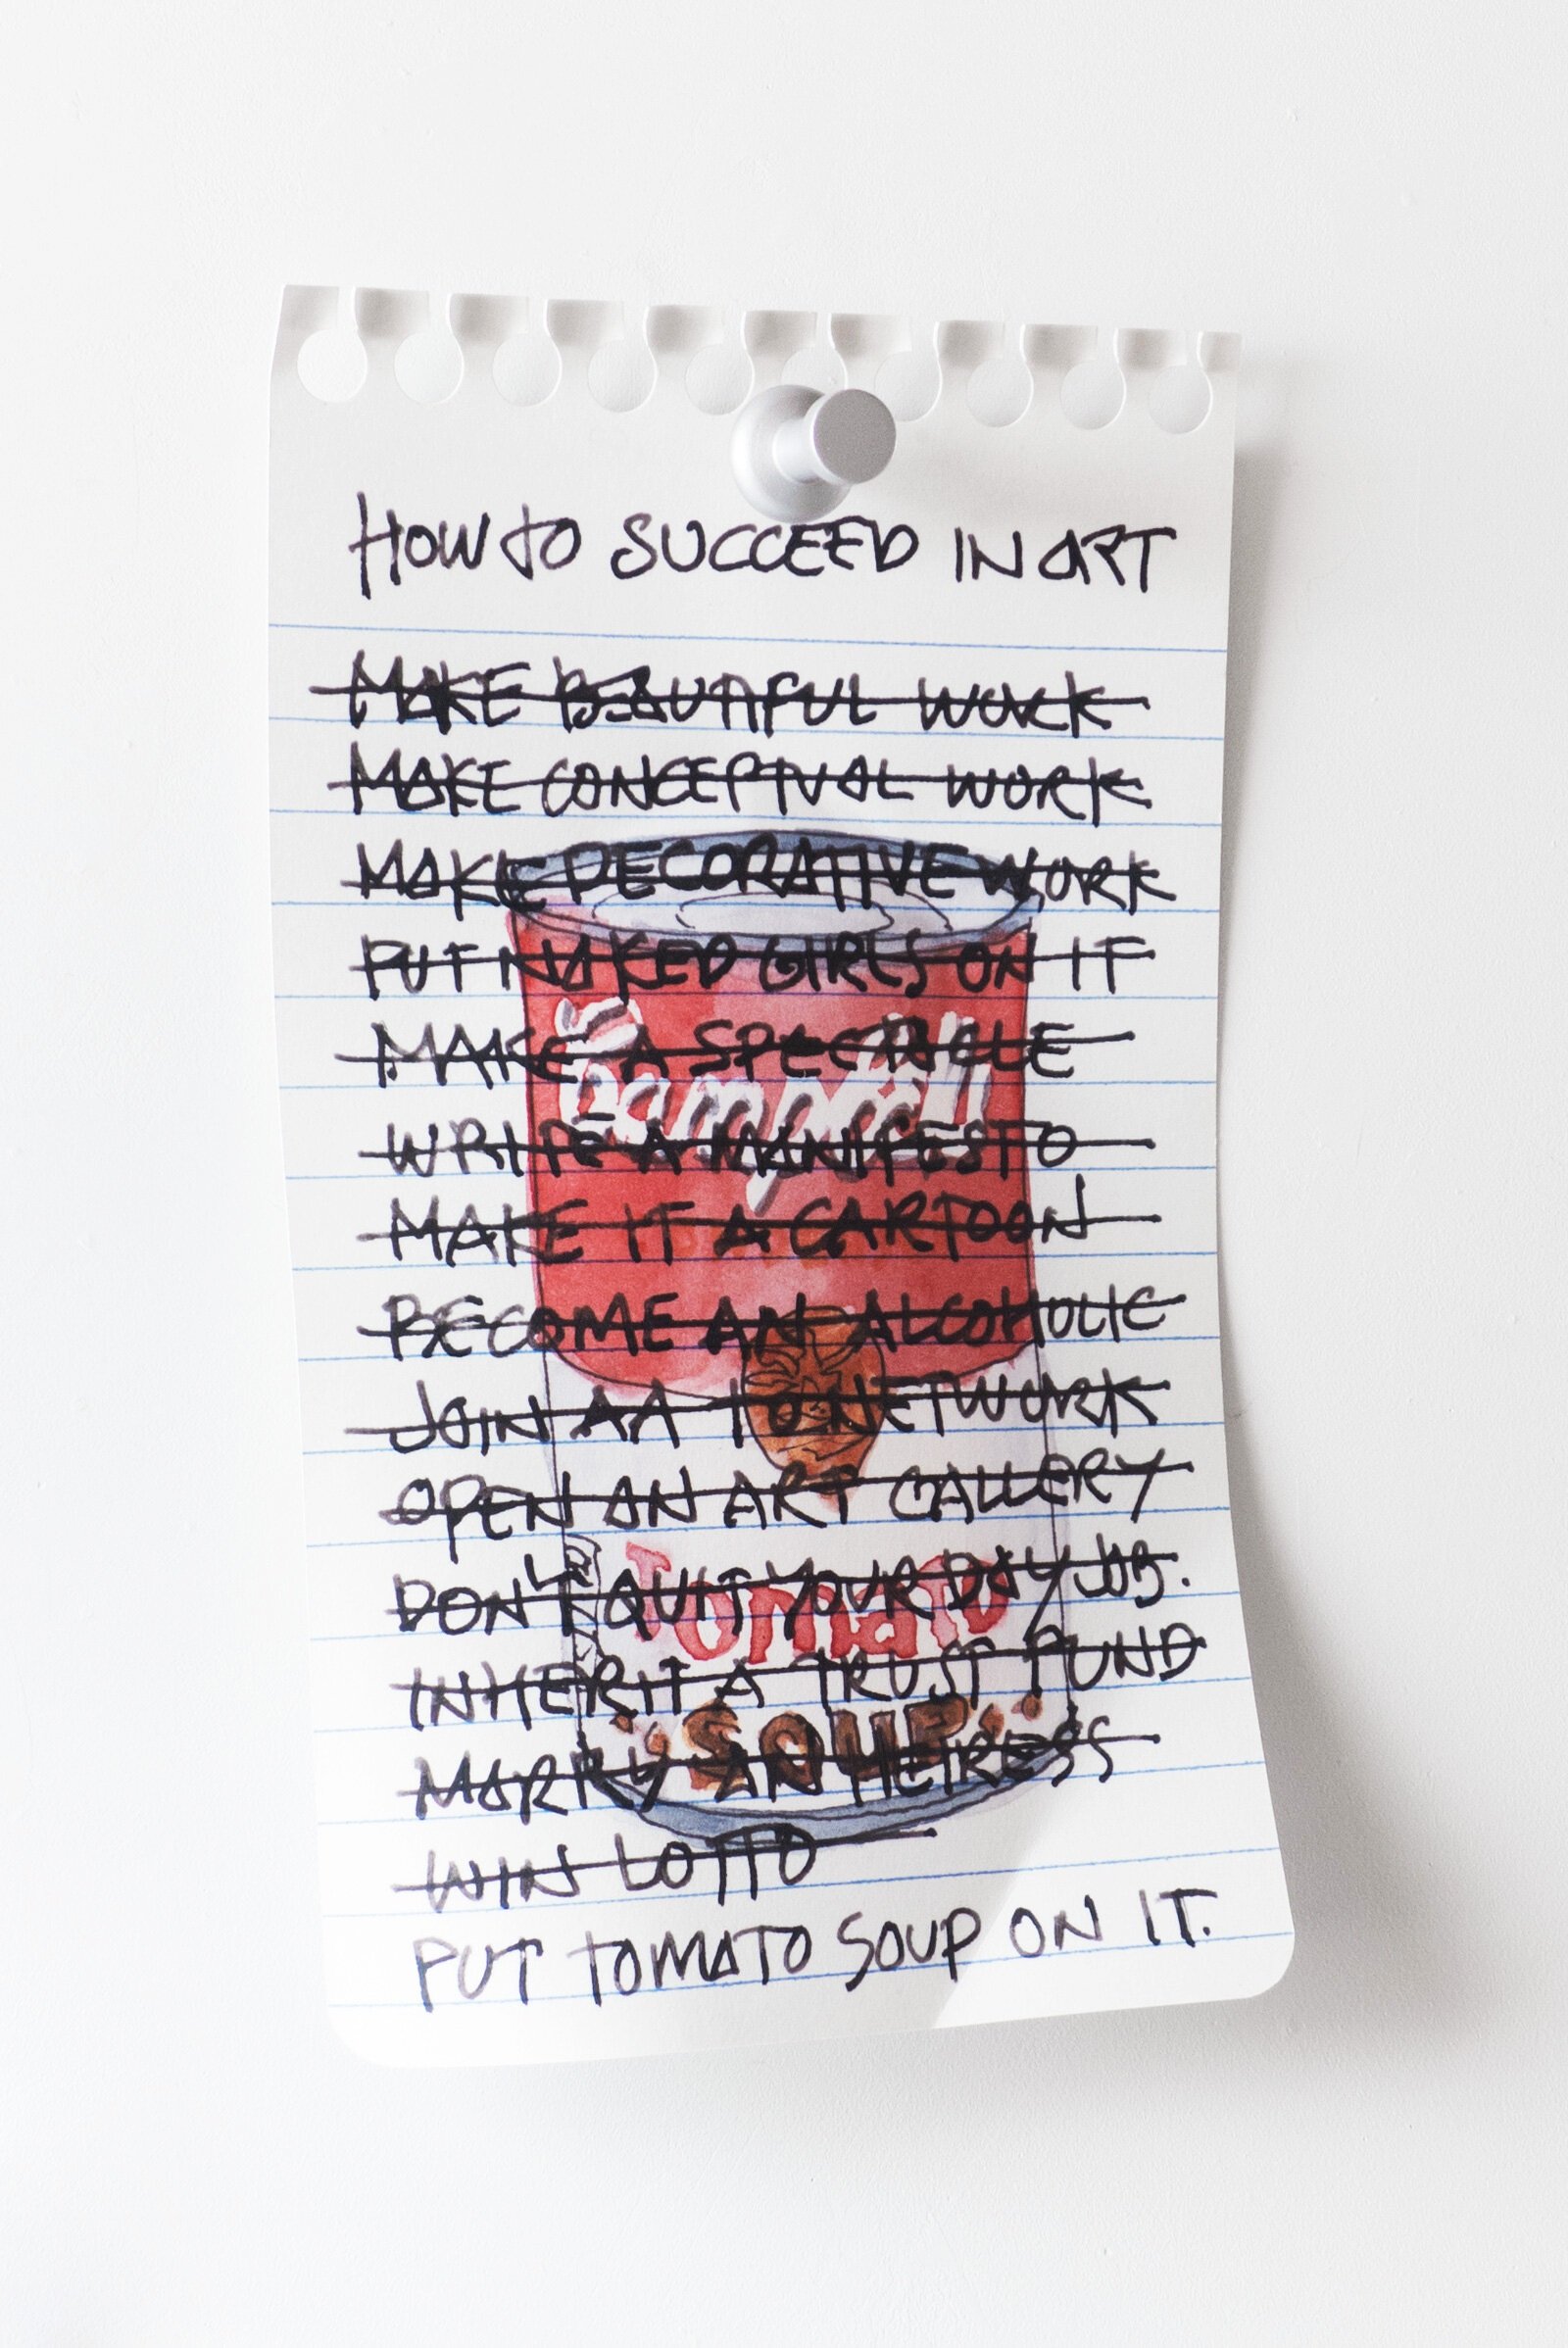 HOW TO SUCCEED IN ART
MAKE BEAUTIFUL WORK
MAKE CONCEPTUAL WORK
MAKE DECORATIVE WORK
PUT NAKED GIRLS ON IT
MAKE A SPECTACLE
Campbell's
WRITE A MANIFESTO
MAKE IT A CARTOON
BECOME AN ALCOHOLIC
JOIN AA TO NETWORK
OPEN AN ART GALLERY
DON'T QUIT YOUR DAY JOB.
Tomato
INHERIT A TRUST FUND
SOUP
MARRY AN HEIRESS
WIN LOTTO
PUT TOMATO SOUP ON IT.